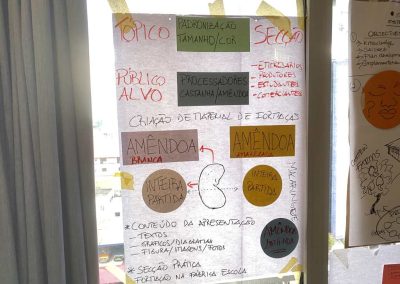 TÓPICO
PADRONIZAÇÃO
TAMANHO/COR
SECÇÃO
PÚBLICO
ALVO
PROCESSADORES
CASTANHA/AMÊNDOA
- EMPRESÁRIOS
- PRODUTORES
- ESTUDANTES
- COMERCIANTES
CRIAÇÃO DE MATERIAL DE
AMÊNDOA
BRANCA
AMÊNDOA
AMARELA
INTEIRA
PARTIDA
INTEIRA
PARTIDA
* CONTEÚDO DA APRESENTAÇÃO
- TEXTOS
- GRÁFICOS/DIAGRAMAS
- FIGURA/IMAGENS/FOTOS
AMÊNDOA
* SECÇÃO PRÁTICA
FORMAÇÃO NA FÁBRICA ESCOLA